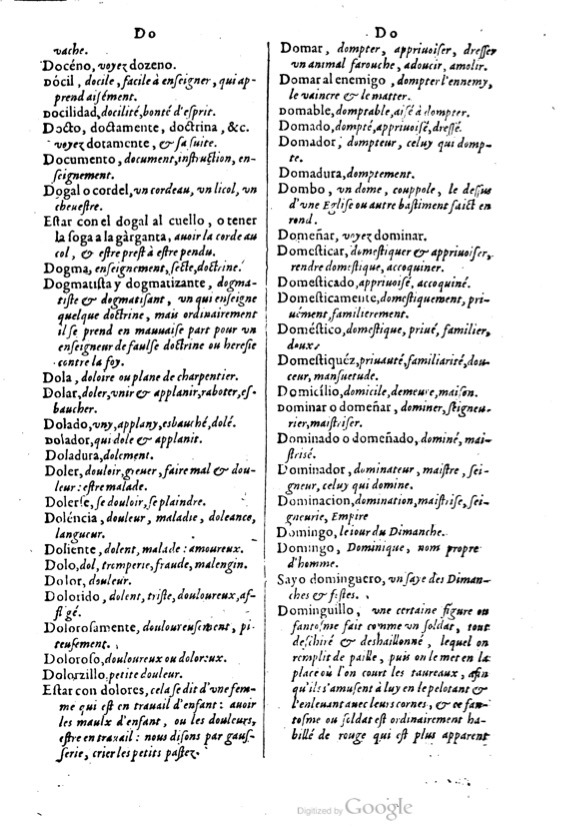 Do
vache.
Docéno, voyez dozeno.
Dócil, docile, facile à enseigner, qui ap-
prend aisément.
Docilidad, docilité, bonté d'esprit.
Docto, doctamente, doctrina, &c.
voyez dotamente, & sa suite.
Documento, document, instruction, en-
seignement.
Dogal o cordel, vn cordeau, vn licol, vn
cheuestre.
Estar con el dogal al cuello, o tener
la soga a la gàrganta, auoir la corde au
col, & estre prest à estre pendu.
Dogma, enseignement, secte, doctrine.
Dogmatista y dogmatizante, dogma-
tiste & dogmatisant, vn qui enseigne
quelque doctrine, mais ordinairement
il se prend en mauuaise part pour vn
enseigneur de faulse doctrine ou heresie
contre la foy.
Dola, doloire ou plane de charpentier.
Dolar, doler, vnir & applanir, raboter, es-
baucher.
Dolado, vny, applany, esbauché, dolé.
Dolador, qui dole & applanit.
Doladura, dolement.
Doler, douloir, greuer, faire mal & dou-
leur: estre malade.
Dolerse, se douloir, se plaindre.
Doléncia, douleur, maladie, doleance,
langueur.
Doliente, dolent, malade: amoureux.
Dolo, dol, tromperie, fraude, malengin.
Dolor, douleur.
Dolorido, dolent, triste, douloureux, af-
fligé.
Dolorosamente, douloureusement, pi-
teusement.
Doloroso, douloureux ou doloreux.
Dolorzillo, petite douleur.
Estar con dolores, cela se dit d'vne fem-
me qui est en trauail d'enfant: auoir
les maulx d'enfant, ou les douleurs,
estre en trauail: nous disons par gaus-
serie, crier les petits pastez.
Do
Domar, dompter, appriuoiser, dresser
vn animal farouche, adoucir, amolir.
Domar al enemigo, dompter l'ennemy,
le vaincre & le matter.
Domable, domptable, aisé à dompter.
Domado, dompté, appriuoisé, dressé.
Domador, dompteur, celuy qui domp-
te.
Domadura, domptement.
Dombo, vn dome, couppole, le dessus
d'vne Eglise ou autre bastiment faict en
rond.
Domeñar, voyez dominar.
Domesticar, domestiquer & appriuoiser,
rendre domestique, accoquiner.
Domesticado, appriuoisé, accoquiné.
Domesticamente, domestiquement, pri-
uément, familierement.
Doméstico, domestique, priué, familier,
doux.
Domestiquéz, priuauté, familiarité, dou-
ceur, mansuetude.
Domicílio, domicile, demeure, maison.
Dominar o domeñar, dominer, seigneu-
rier, maistriser.
Dominado o domeñado, dominé, mai-
strisé.
Dominador, dominateur, maistre, sei-
gneur, celuy qui domine.
Dominacion, domination, maistrise, sei-
gneurie, Empire
Domingo, le iour du Dimanche.
Domingo, Dominique, nom propre
d'homme.
Sayo dominguero, vn saye des Diman-
ches & festes.
Dominguillo, vne certaine figure ou
fantosme fait comme vn soldat, tout
deschiré & deshaillonné, lequel on
remplit de paille, puis on le met en la
place où l'on court les taureaux, afin
qu'ils s'amusent à luy en le pelotant &
l'enleuant auec leurs cornes, & ce fan-
tosme ou soldat est ordinairement ha-
billé de rouge qui est plus apparent
Digitized by Google